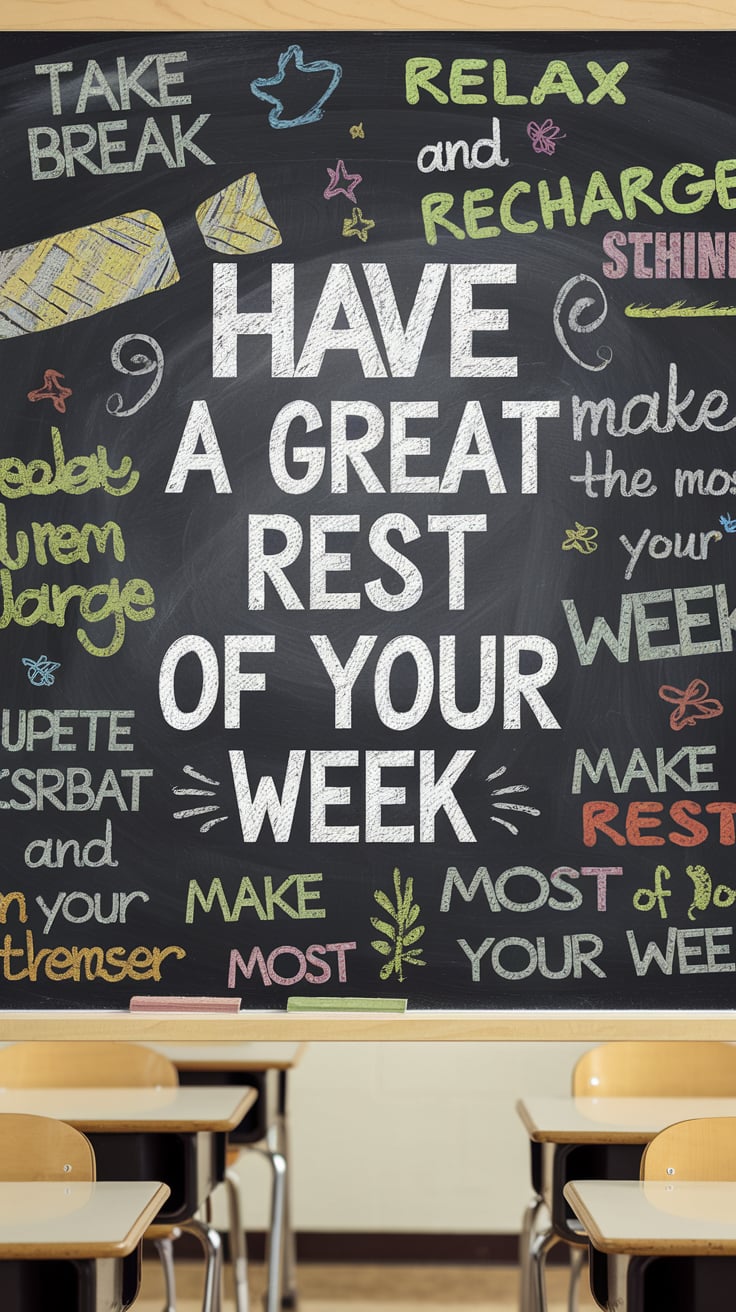 TAKE
BREAK
RELAX
and
RECHARGE
STHINI
HAVE
A GREAT
REST
OF YOUR
WEEK
make
the mos
your
WEEK
urem
large
UPETE
CSRBAT
and
your
themser
MAKE
REST
MAKE
MOST
MOST of
YOUR WEE